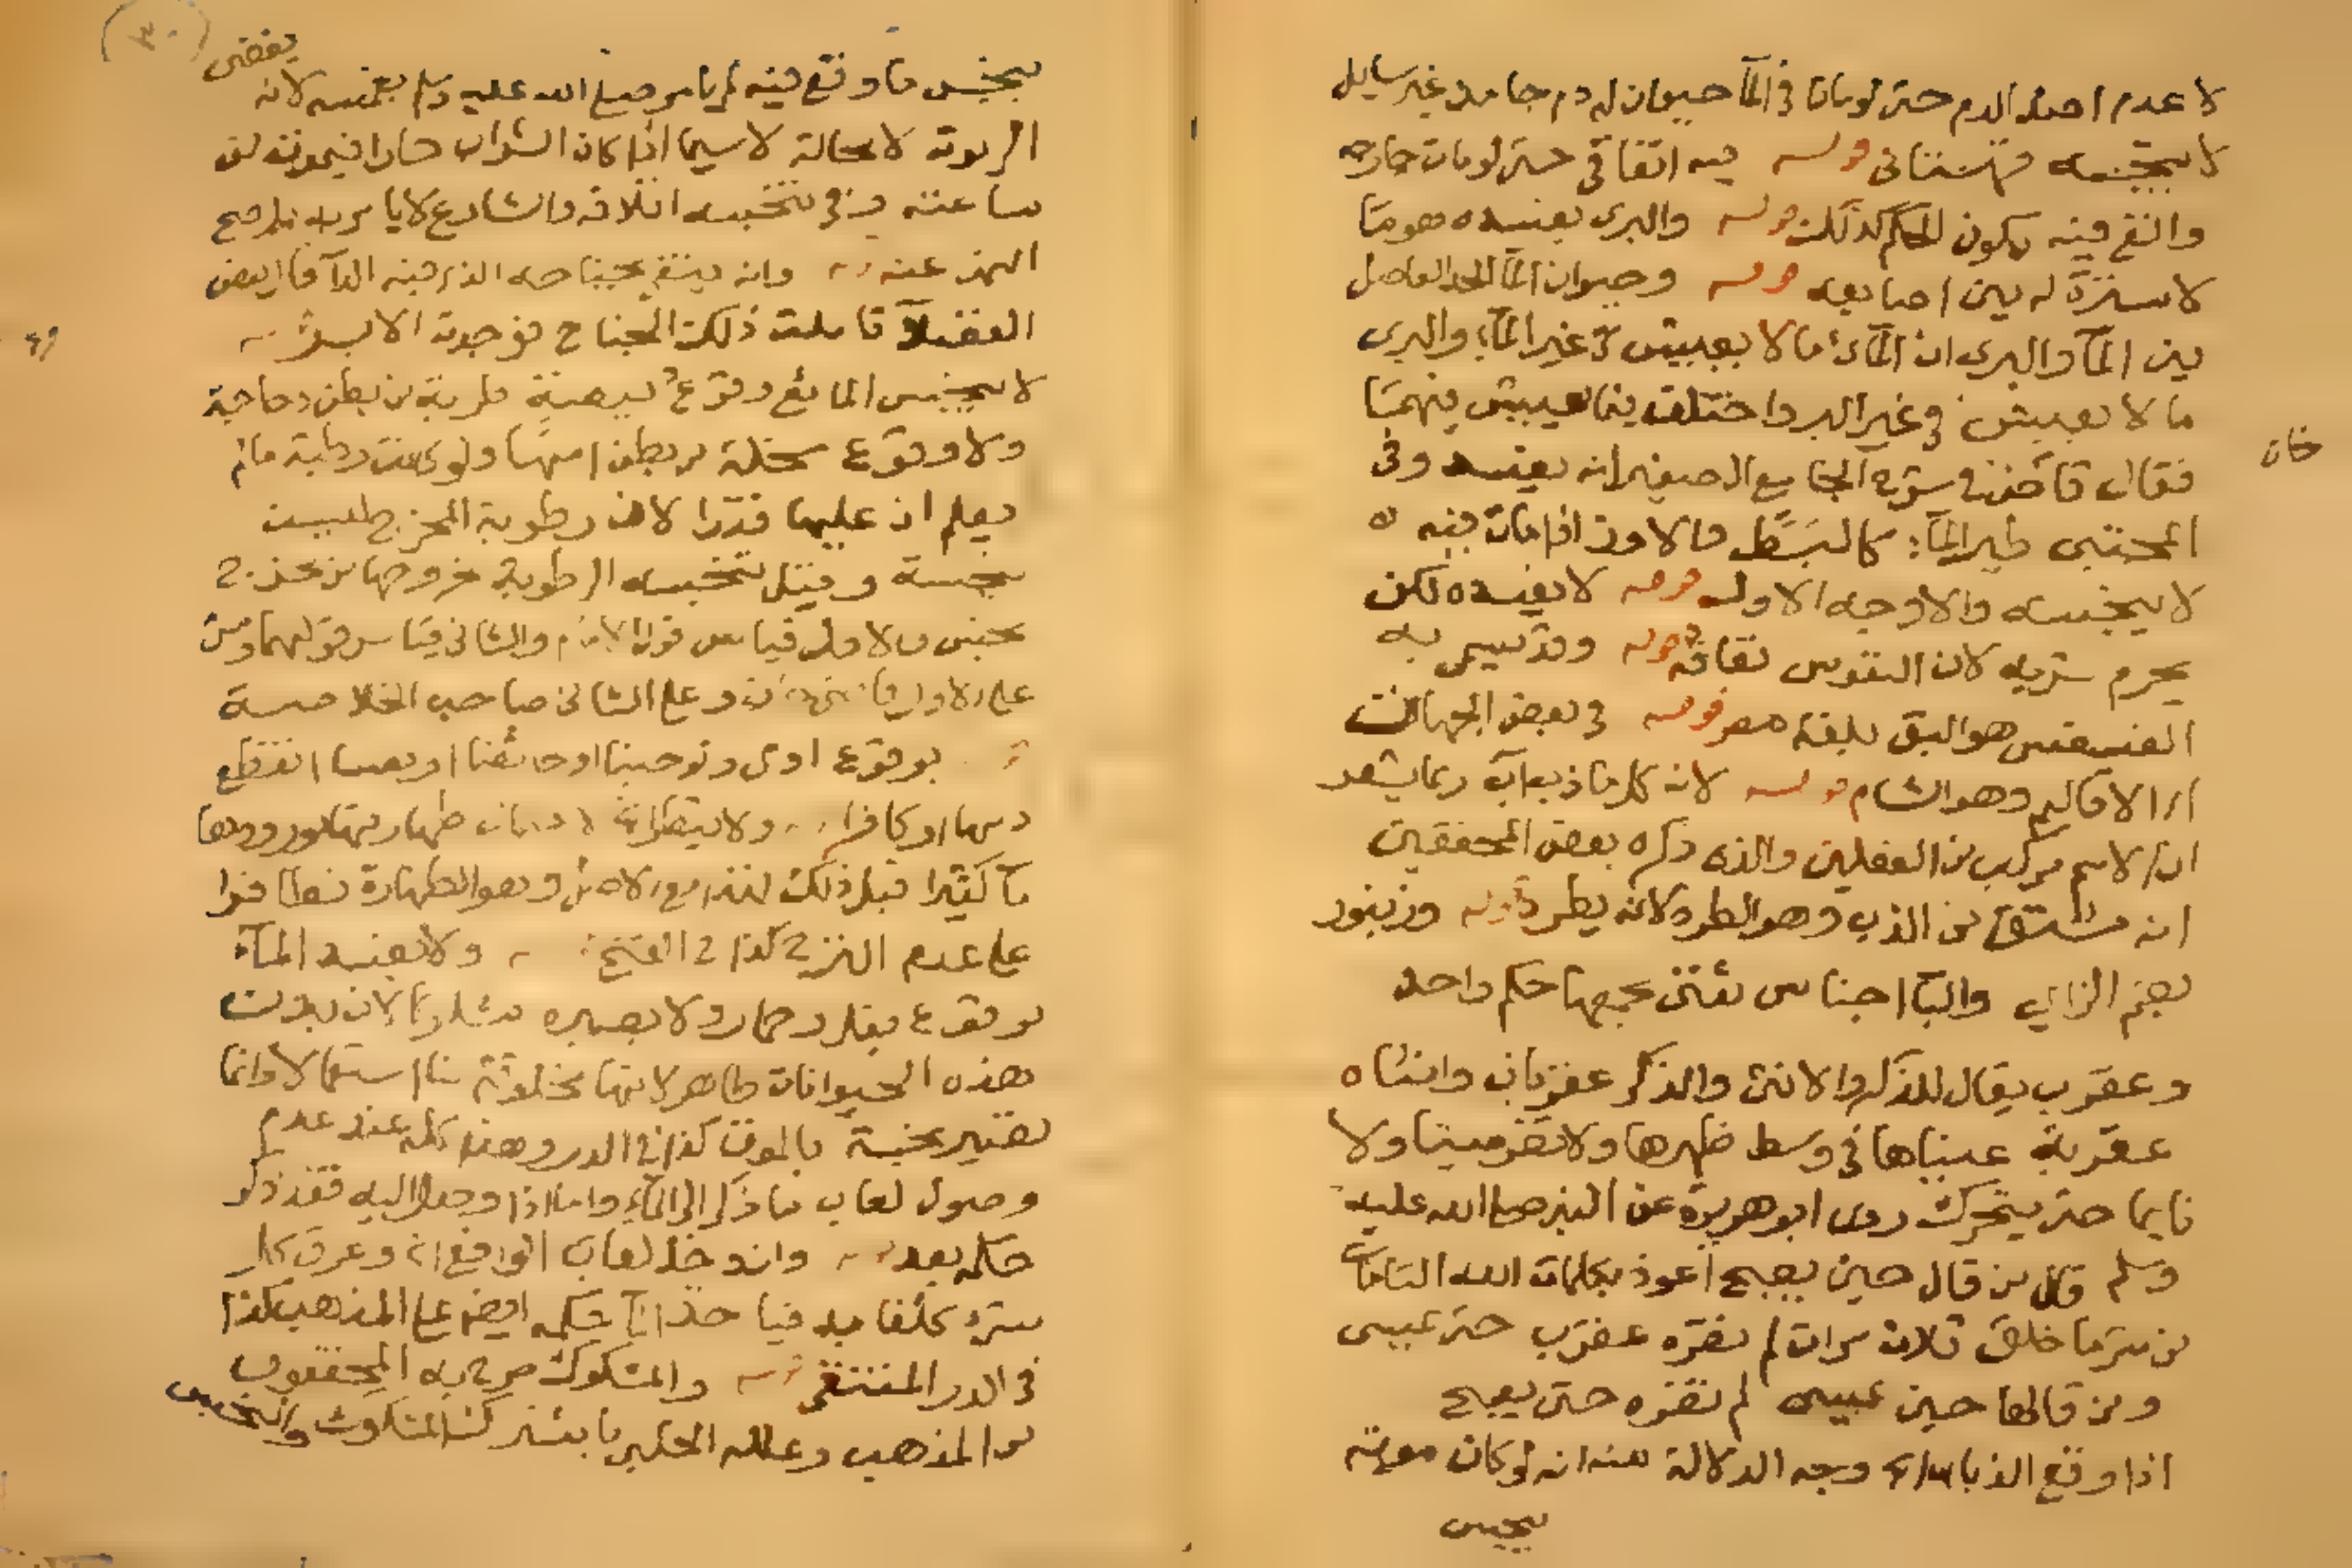 لا عدم اصل الدم حتى لو مات في المآ حيوان له دم جامد غير سايل
لا ينجسه قهستاني قوله فيه اتفاقي حتى لو مات خارجه
والقي فيه يكون الحكم كذلك قوله والبرى يفسده هو ما
لا سترة له بين اصابعه قوله وحيوان المآ الحد الفاصل
بين المآ والبرى ان المآئ ما لا يعيش في غير المآء والبرى
ما لا يعيش في غير البر واختلف فيما يعيش فيهما
فقال قاضي في شرح الجامع الصغير انه يفسد وفي
خان
المجتبى طير المآء كالبط والاوز اذا مات فيه
لا ينجسه والاوجه الاول قوله لا يفسده لكن
يحرم شربه لان النفوس تعافه قوله وقد يسمى به
الفسفس هو البق بلغة مصر قوله في بعض الجهات
اى الاقاليم وهو الشام قوله لانه كلما ذب آب ربما يشعر
ان الاسم مركب من الفعلين والذى ذكره بعض المحققين
انه مشتق من الذب وهو الطرد لانه يطرد قوله وزنبور
بضم الزاي والبآ اجناس شتى يجمعها حكم واحد
وعقرب يقال للذكر والانثى والذكر عقربان وانثاه
عقربة عيناها في وسط ظهرها ولا تضر ميتا ولا
نايما حتى يتحرك روى ابو هريرة عن النبي صلى الله عليه
وسلم قال من قال حين يصبح اعوذ بكلمات الله التامات
من شر ما خلق ثلاث مرات لم تضره عقرب حتى يمسى
ومن قالها حين يمسى لم تضره حتى يصبح
اذا وقع الذباب وجه الدلالة منه انه لو كان موته
ينجس
٣٠
ينجس ما وقع فيه لم يامر صلى الله عليه وسلم بغمسه لانه
يفضى
الى موته لا محالة لا سيما اذا كان الشراب حارا فيموت من
ساعته وفي تنجيسه اتلافه والشارع لا يامر به بل صح
النهى عنه قوله وانه يتقي بجناحه الذى فيه الدآ قال بعض
الفضلآ تاملت ذلك الجناح فوجدته الايسر قوله
لا ينجس المائع وقوع بيضة طرية من بطن دجاجة
ولا وقوع سخلة من بطن امها ولو كانت رطبة ما لم
يعلم ان عليها قذرا لان رطوبة المخرج ليست
نجسة وقيل تنجسه الرطوبة خروجها من مخرج
نجس والاول قياس قول الامام والثانى قياس قولهما ومشى
على الاول قاضيخان وعلى الثانى صاحب الخلاصة
قوله بوقوع ادمى ولو جنبا او حائضا او نفسا انقطع
دمها او كافرا ولا
مآ كثيرا قبل ذلك وهو الطهارة
على عدم النزح كذا في الفتح قوله ولا يفسد المآء
بوقوع بغل وحمار ولا يصيره مشكوكا لان بدن
هذه الحيوانات طاهر لانها مخلوقة لنا استعمالا وانما
تصير نجسة بالموت كذا في الدر وهذا كله عند عدم
وصول لعاب ما ذكر الى المآء واما اذا وصل اليه فقد ذكر
حكمه بعد قوله وان دخل لعاب الواقع الخ وعرق كل
شئ كلعابه فياخذ المآ حكمه ايضا على المذهب كذا
في الدر المنتقى قوله والمشكوك صرح به المحققون
من المذهب وعلله الحلبي باشتراك المشكوك والنجس